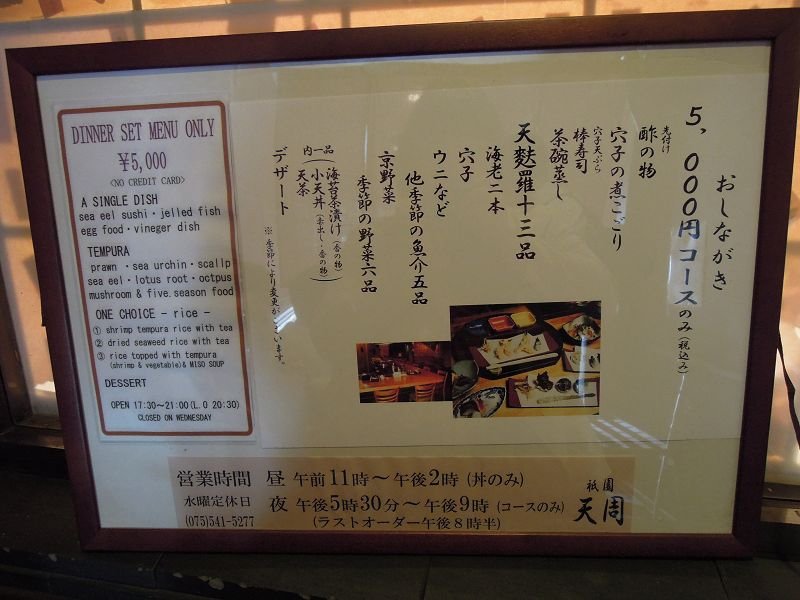 DINNER SET MENU ONLY
¥5,000
<NO CREDIT CARD>
A SINGLE DISH
sea eel sushi・jelled fish
egg food・vineger dish
TEMPURA
prawn ・sea urchin・scallp
sea eel・lotus root・octpus
mushroom & five.season food
ONE CHOICE - rice -
① shrimp tempura rice with tea
② dried seaweed rice with tea
③ rice topped with tempura
(shrimp & vegetable)& MISO SOUP
DESSERT
OPEN 17:30～21:00(L.O 20:30)
CLOSED ON WEDNESDAY
おしながき
5,000円コースのみ(税込み)
先付け
酢の物
穴子の煮こごり
穴子天ぷら
棒寿司
茶碗蒸し
天麩羅十三品
海老二本
穴子
ウニなど
他季節の魚介五品
京野菜
季節の野菜六品
内一品
海苔茶漬け(香の物)
小天丼(赤出し・香の物)
天茶
デザート
※季節により変更がございます。
営業時間 昼 午前11時～午後2時 (丼のみ)
水曜定休日 夜 午後5時30分～午後9時 (コースのみ)
(075)541-5277 (ラストオーダー午後8時半)
祇園
天周